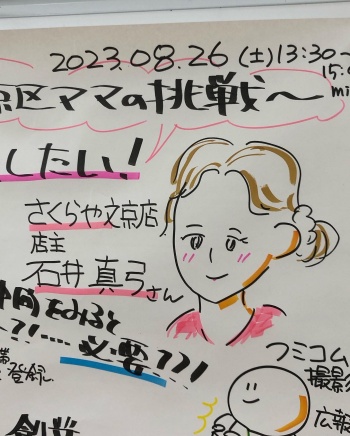 2023.08.26 (土) 13:30~
15:0
京区ママの挑戦~
mi
したい!
さくらや文京店
店主
石井真弓さん
仲間をみると
…?!……必要??!
登録~
フミコム
撮影
広報
創業